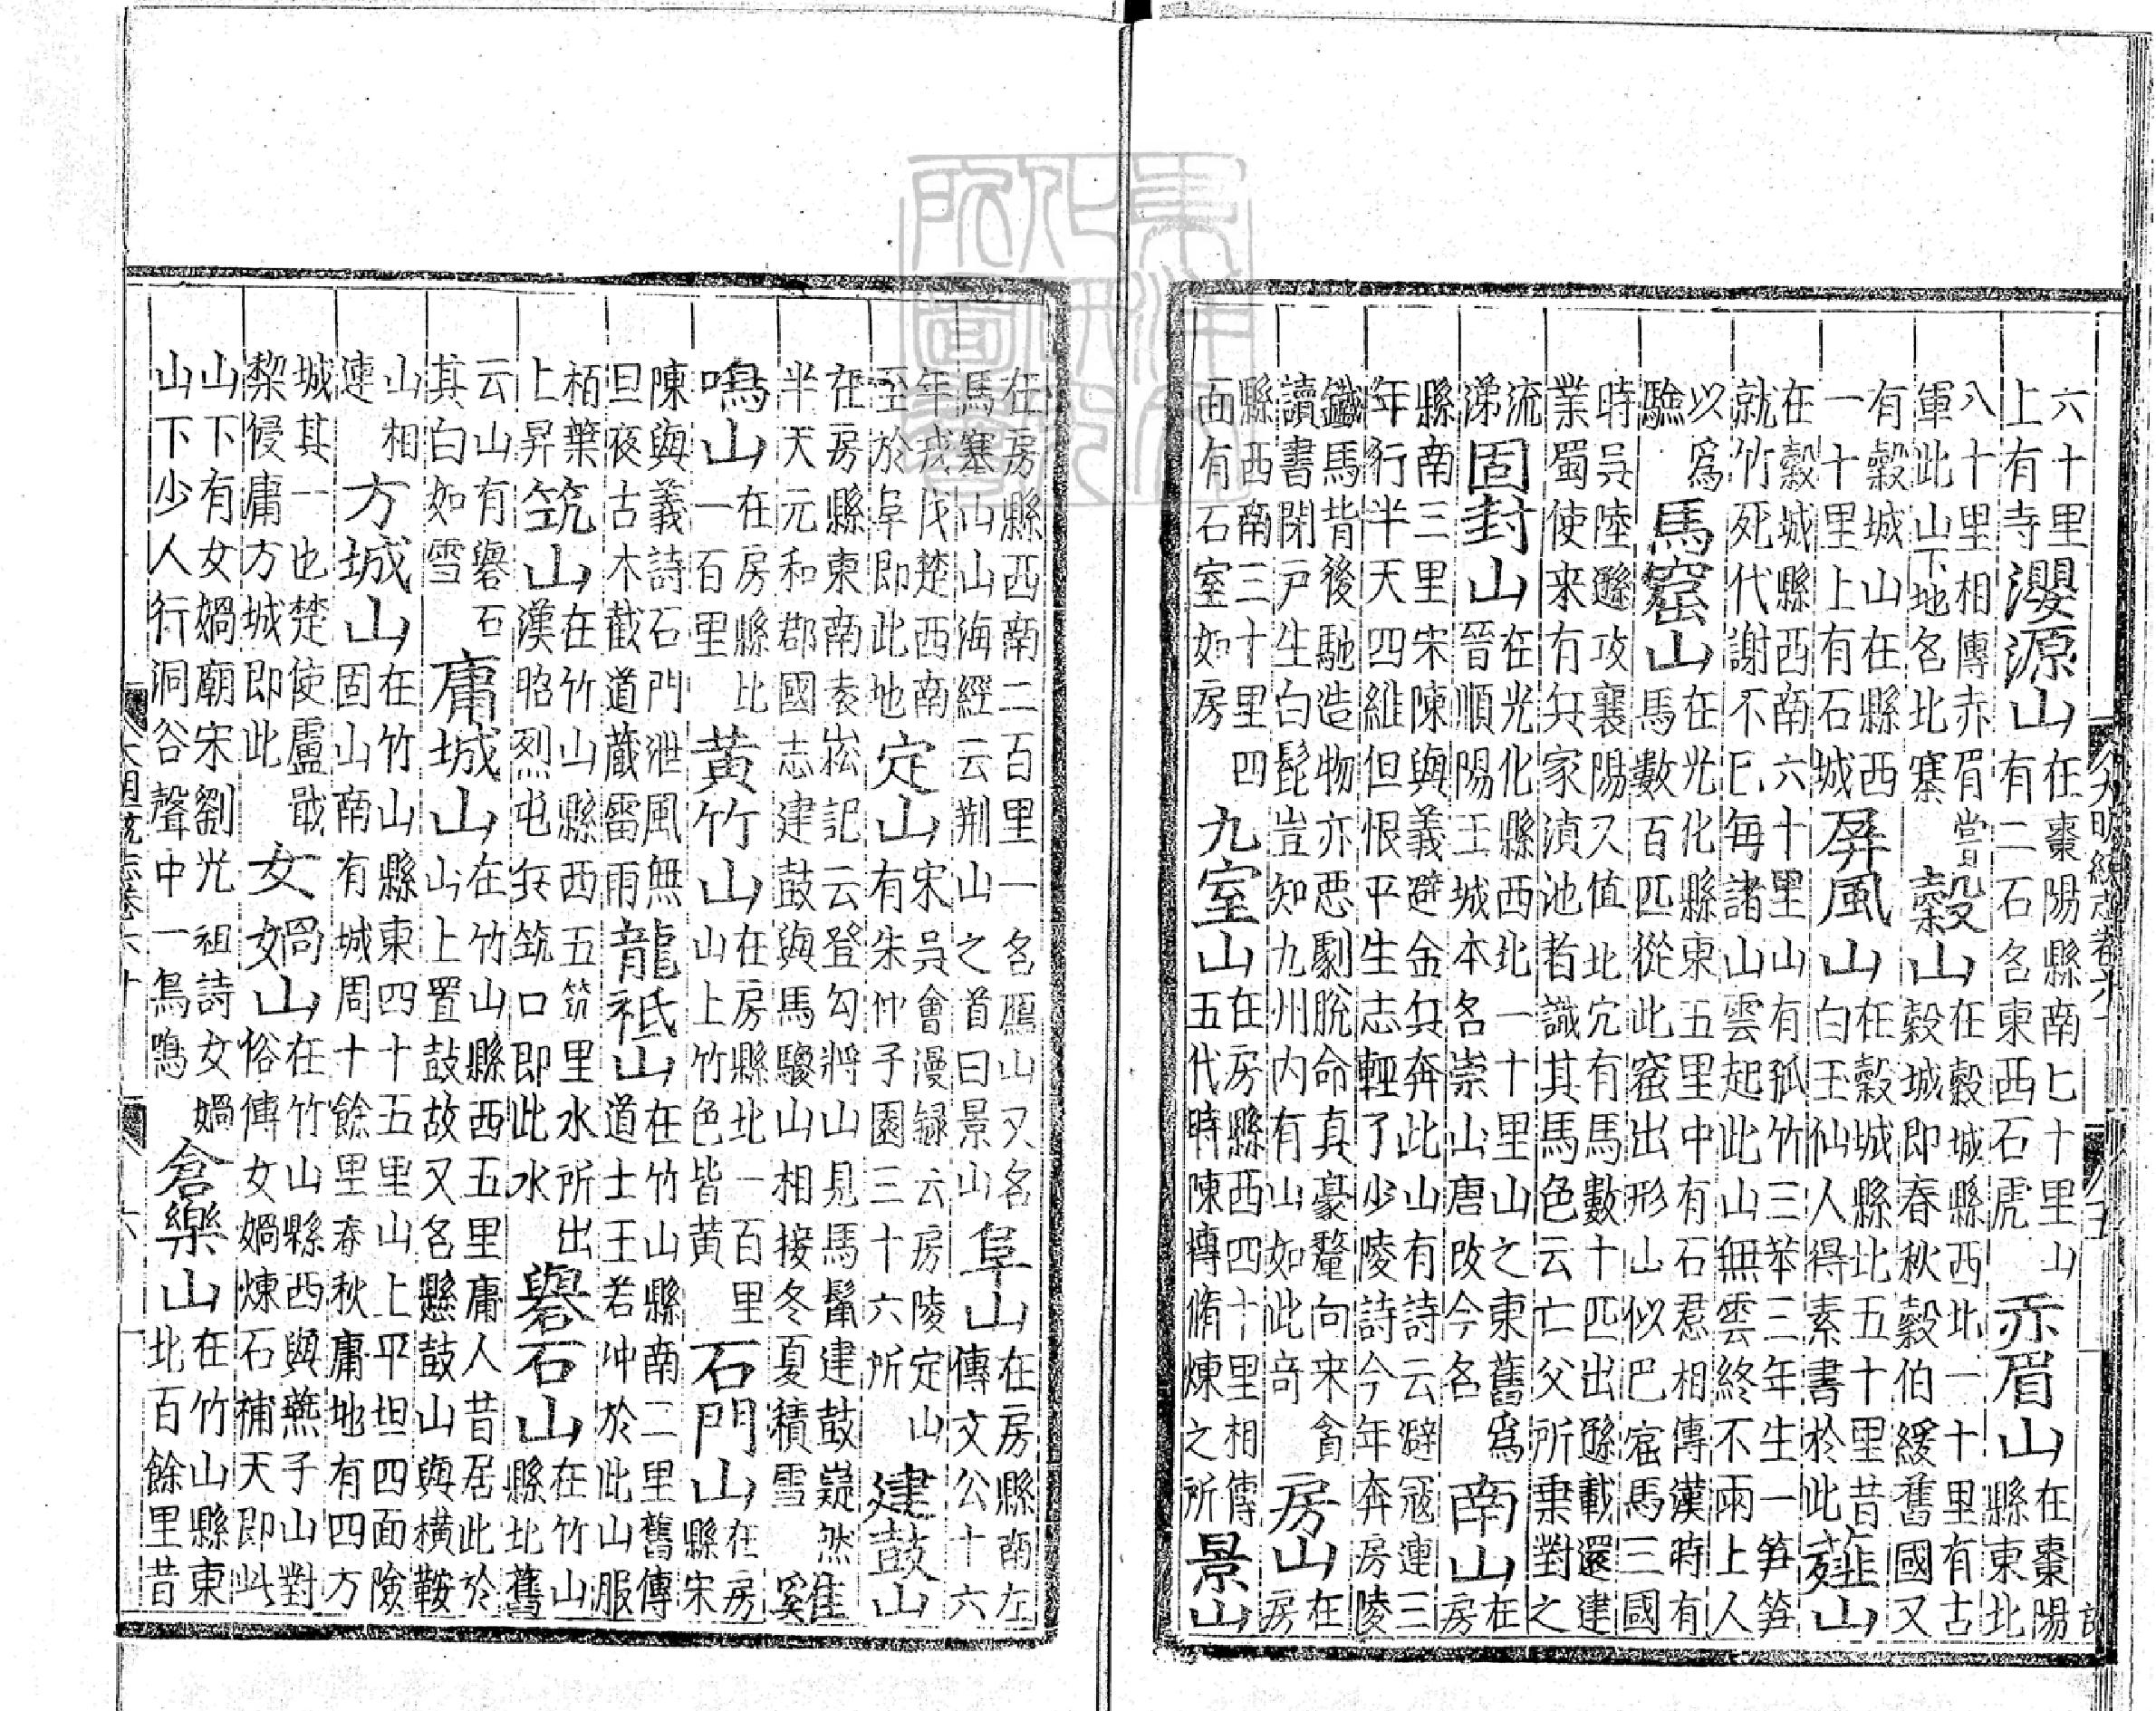 六十里
上有寺
瀴源山
在棗陽縣南七十里山
有二石名東西石虎
赤眉山
在棗陽
縣東北
八十里相傳赤眉嘗
軍此山下地名北寨
穀山
在穀城縣西北一十里有古
穀城即春秋穀伯綏舊國又
有穀城山在縣西
一十里上有石城
屏風山
在穀城縣北五十里昔
白玉仙人得素書於此
薤山
在穀城縣西南六十里山有孤竹三莖三年生一笋笋
就竹死代謝不已每諸山雲起此山無雲終不兩上人
以爲
驗
馬窟山
在光化縣東五里中有石相傳漢時有
馬數百匹從此窟出形山似巴馬三國
時吳陸遜攻襄陽又值北穴有馬數十匹出遜載還建
業蜀使来有兵家滇池者識其馬色云亡父所乗對之
流
涕
固封山
在光化縣西北一十里山之東舊爲
晉順陽王城本名崇山唐改今名
南山
在
房
縣南三里宋陳與義避金兵奔此山有詩云避冦連三
年行半天四維但恨平生志輕了少陵詩今年奔房陵
鐵馬背後馳造物亦惡劇脫命真豪釐向来貪
讀書閉戸生白髭豈知九州内有山如此竒
房山
在
房
縣西南三十里四
面有石室如房
九室山
在房縣西四十里相傳
五代時陳摶脩煉之所
景山
在房縣西南二百里一名鴈山又名
馬塞山山海經云荆山之首曰景山
阜山
在房縣南左
傳文公十六
年戎伐楚西南
至於阜即此地
定山
宋呉會漫録云房陵定山
有朱仲子園三十六所
建鼓山
在房縣東南袁崧記云登勾將山見馬鬛建鼓嶷然
半天元和郡國志建鼓與馬騣山相接冬夏積雪
雞
鳴山
在房縣北
一百里
黃竹山
在房縣北一百里
山上竹色皆黃
石門山
在房
縣宋
陳與義詩石門泄風無
旦夜古木截道藏雷雨
龍祗山
在竹山縣南二里舊傳
道士王若冲於此山服
栢葉
上昇
筑山
在竹山縣西五筑里水所出
漢昭烈屯兵筑口即此水
礜石山
在竹山
縣北舊
云山有礜石
其白如雪
庸城山
在竹山縣西五里庸人昔居此於
山上置鼓故又名懸鼓山與横鞍
山相
連
方城山
在竹山縣東四十五里山上平坦四面險
固山南有城周十餘里春秋庸地有四方
城其一也楚使廬戢
棃侵庸方城即此
女媧山
在竹山縣西與燕子山對
俗傳女媧煉石補天即此
山下有女媧廟宋劉光祖詩女媧
山下少人行洞谷聲中一鳥鳴
倉樂山
在竹山縣東
北百餘里昔